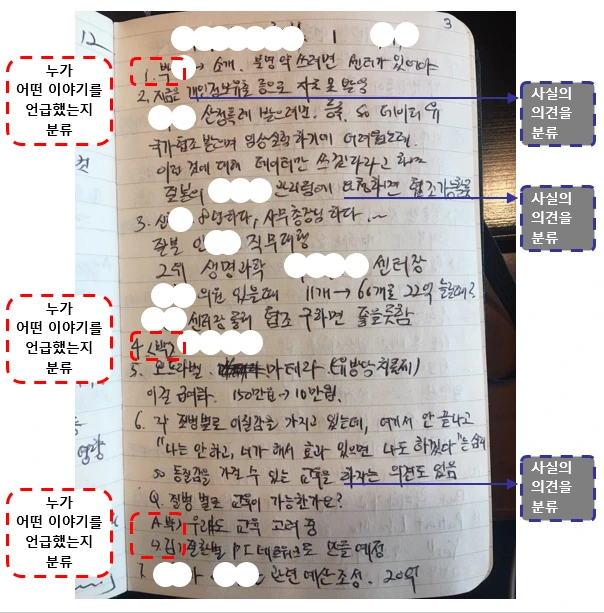 12
3
1. 박 → 소개. 불명약 쓰려면 센터가 있어야
2. 지금은 개인정보유출 등으로 자료 못 받음
산정특례 받으려면, 등록, so 데이터 有
국가협조 받으며 임상실험 하기에 어려웠는데,
이런 것에 대해 데이터만 쓰길 바라고 하며
질본의 브리핑에 요청하면 협조가능할 것
3. 신 하다, 사무총장님 하다 ...
질본 인 직무대행
2위 생명과학 센터장
의원 있을때 11개 → 66개로 22억 늘릴때
센터장 몰래 협조 구하면 좋을듯함
4. <박>
5. 오프라벨. 마테라. (유방암치료제)
이걸 급여화. 150만원 → 10만원.
6. 각 질병별로 이질감을 가지고 있는데, 여기서 안 끝나고
"나는 안 하고, 너가 해서 효과 있으면 나도 하겠다"는 심리
so 동질감을 가질 수 있는 교육을 하자는 의견도 있음
Q. 질병 별로 교육이 가능한가요?
A. 박) 우리도 교육 고려 중
김) 질환별 PT 네트워크도 만들 예정
7. 관련 예산조성. 20억
누가
어떤 이야기를
언급했는지
분류
누가
어떤 이야기를
언급했는지
분류
누가
어떤 이야기를
언급했는지
분류
사실의
의견을
분류
사실의
의견을
분류
사실의
의견을
분류